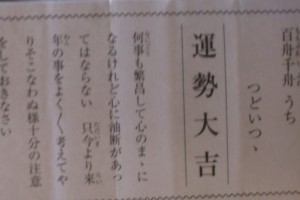 百舟千舟 うち
つどいつゝ
運勢大吉
何事も繁昌して心のまゝに
なるけれど心に油断があっ
てはならない 只今より来
年の事をよく〳〵考えてや
りそこなわぬ様十分の注意
をしておきなさい